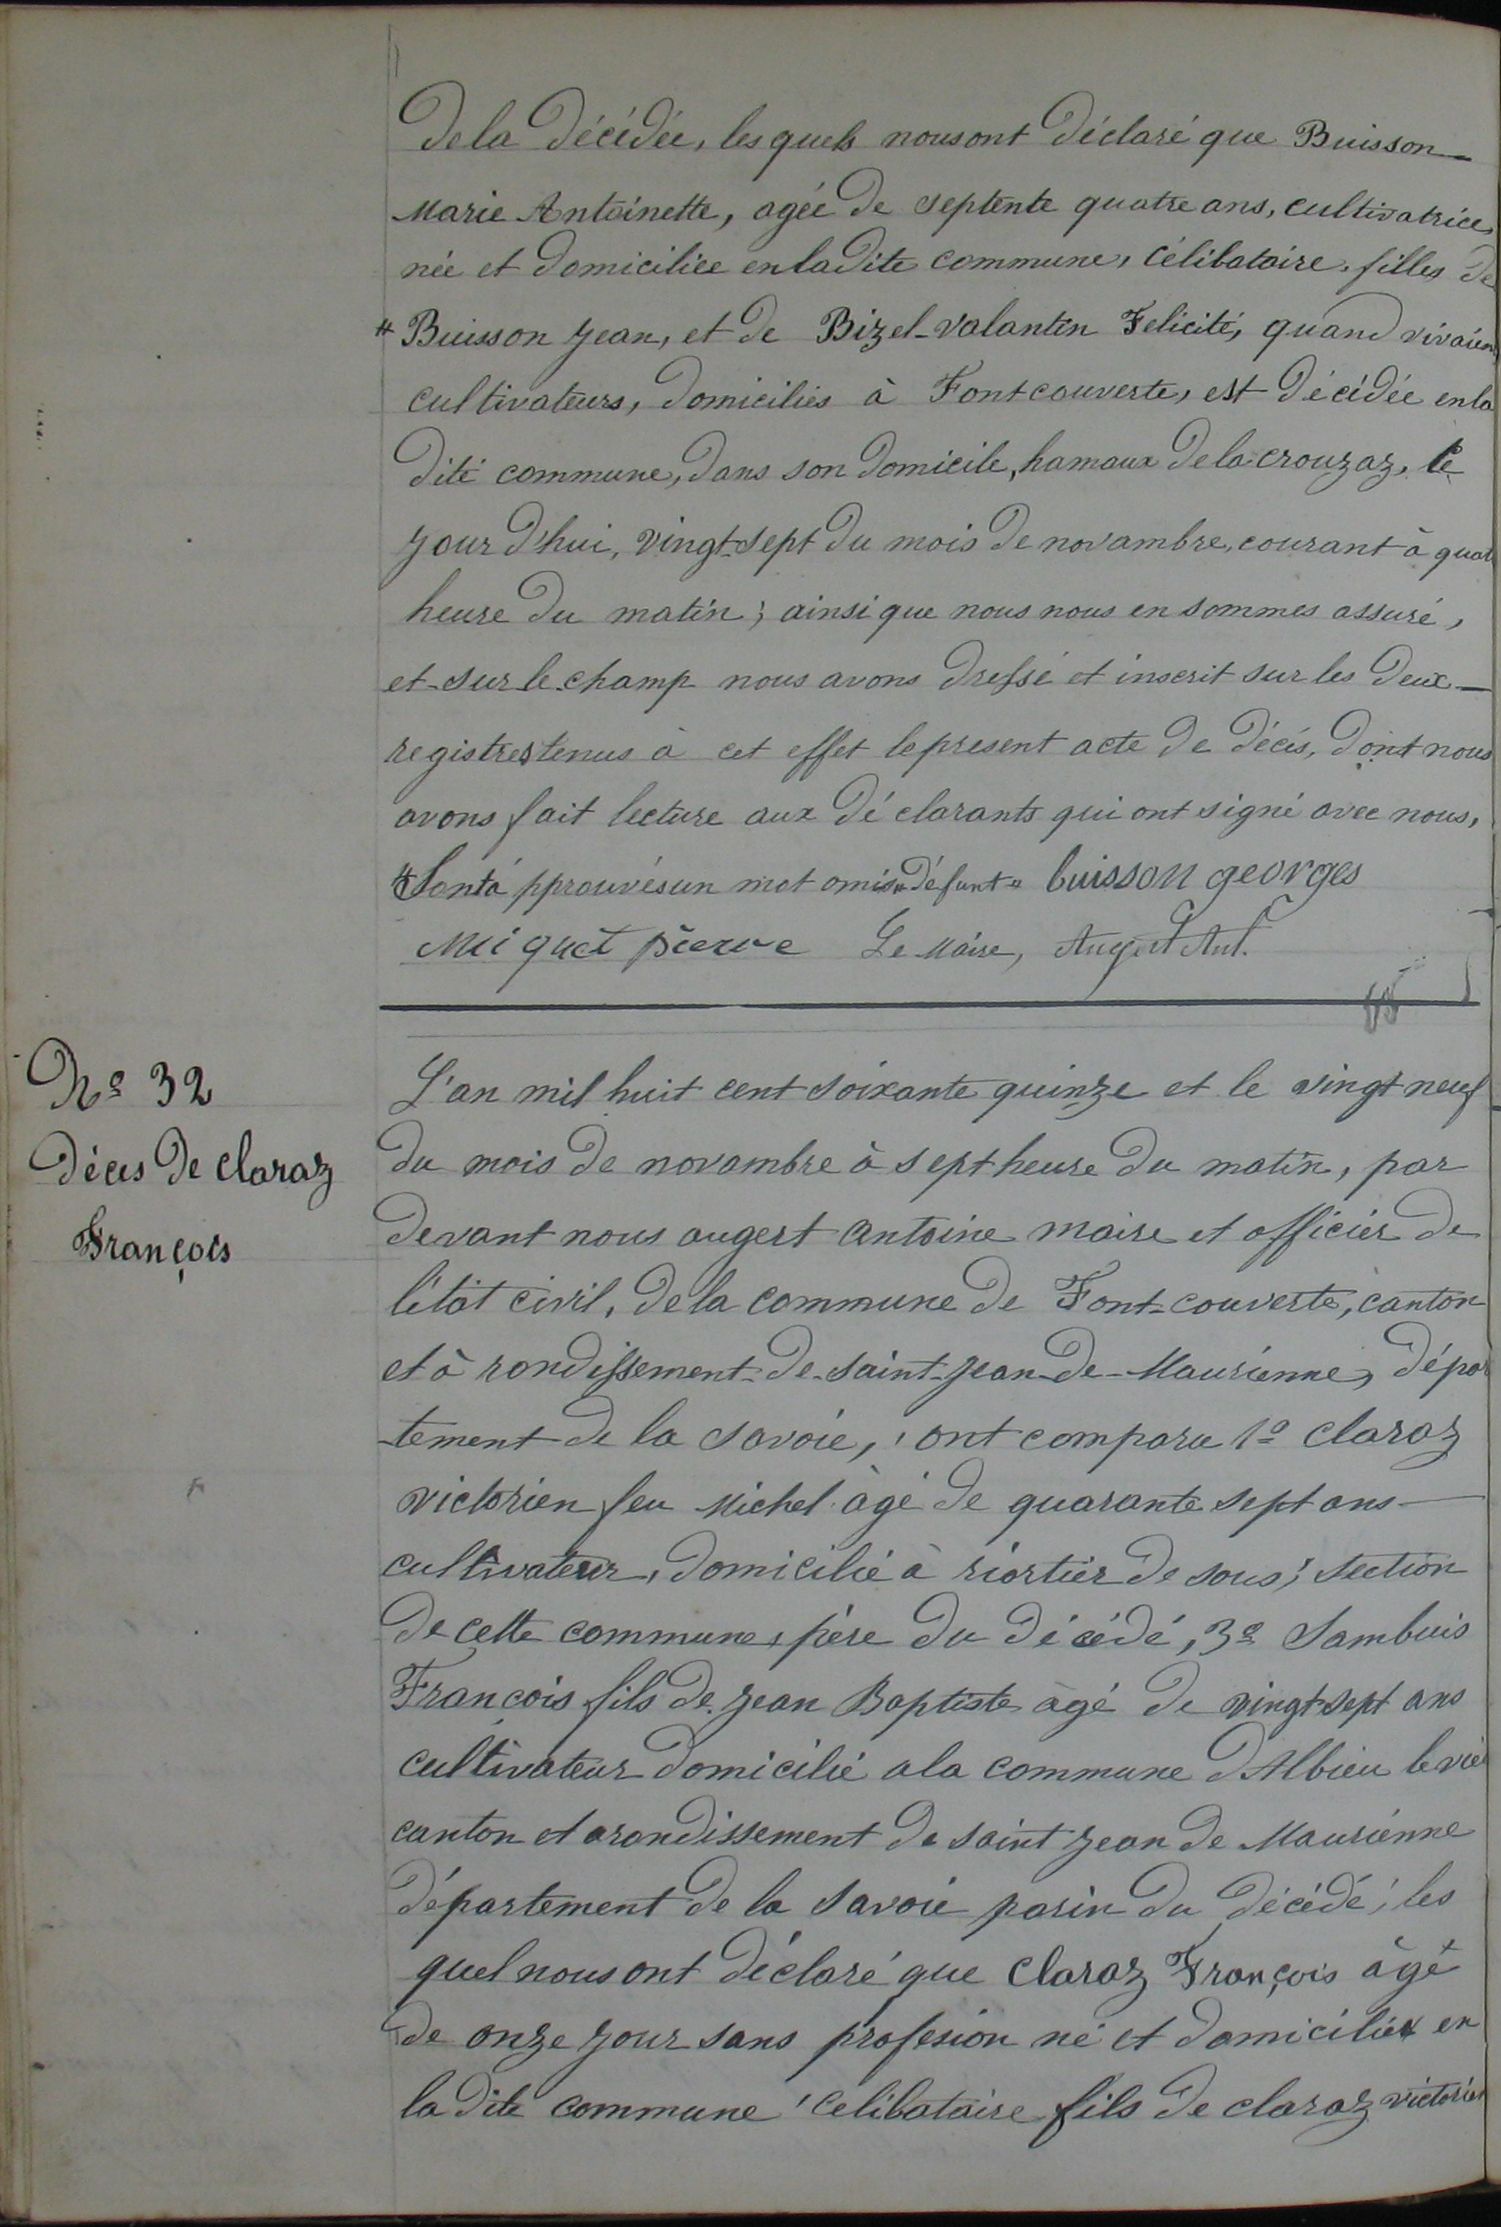 de la décédée, les quels nous ont déclaré que Buisson
Marie Antoinette, agée de septente quatre ans, cultivatrice,
née et domiciliée en la dite commune, célibataire, filles de
# Buisson Jean, et de Bizel-valantin Felicité, quand vivaien
cultivateurs, domiciliés à Fontcouverte, est décédée en la
dite commune, dans son domicile, hamaux de la crouzaz, le
jour d'hui, vingt-sept du mois de novambre, courant à quat
heure du matin; ainsi que nous nous en sommes assuré,
et sur le champ nous avons dressé et inscrit sur les deux
registres tenus à cet effet le present acte de décès, dont nous
avons fait lecture aux déclarants qui ont signé avec nous,
# Sont approuvés un mot omis "défunt" buisson georges
Miquet pierre Le Maire, Augert Ant.
N° 32
décès de claraz
François
L'an mil huit cent soixante quinze et le vingt neuf
du mois de novambre à sept heure du matin, par
devant nous augert antoine maire et officier de
l'étât civil, de la commune de Font-couverte, canton
et à rondissement de saint-Jean-de-Maurienne, dépar
tement de la savoie, ont comparu 1° claraz
victorien feu Michel âgé de quarante sept ans
cultivateur, domicilié à riortier de sous; section
de cette commune, père du décédé, 3° Sambuis
François fils de Jean Baptiste âgé de vingt sept ans
cultivateur domicilié a la commune d'Albieu le vie
canton et arondissement de saint Jean de Maurienne
département de la savoie parin du décédé; les
quel nous ont déclaré que Claraz François âgé
de onze jour sans profesion né et domiciliéx en
la dite commune celibataire fils de claraz victorien